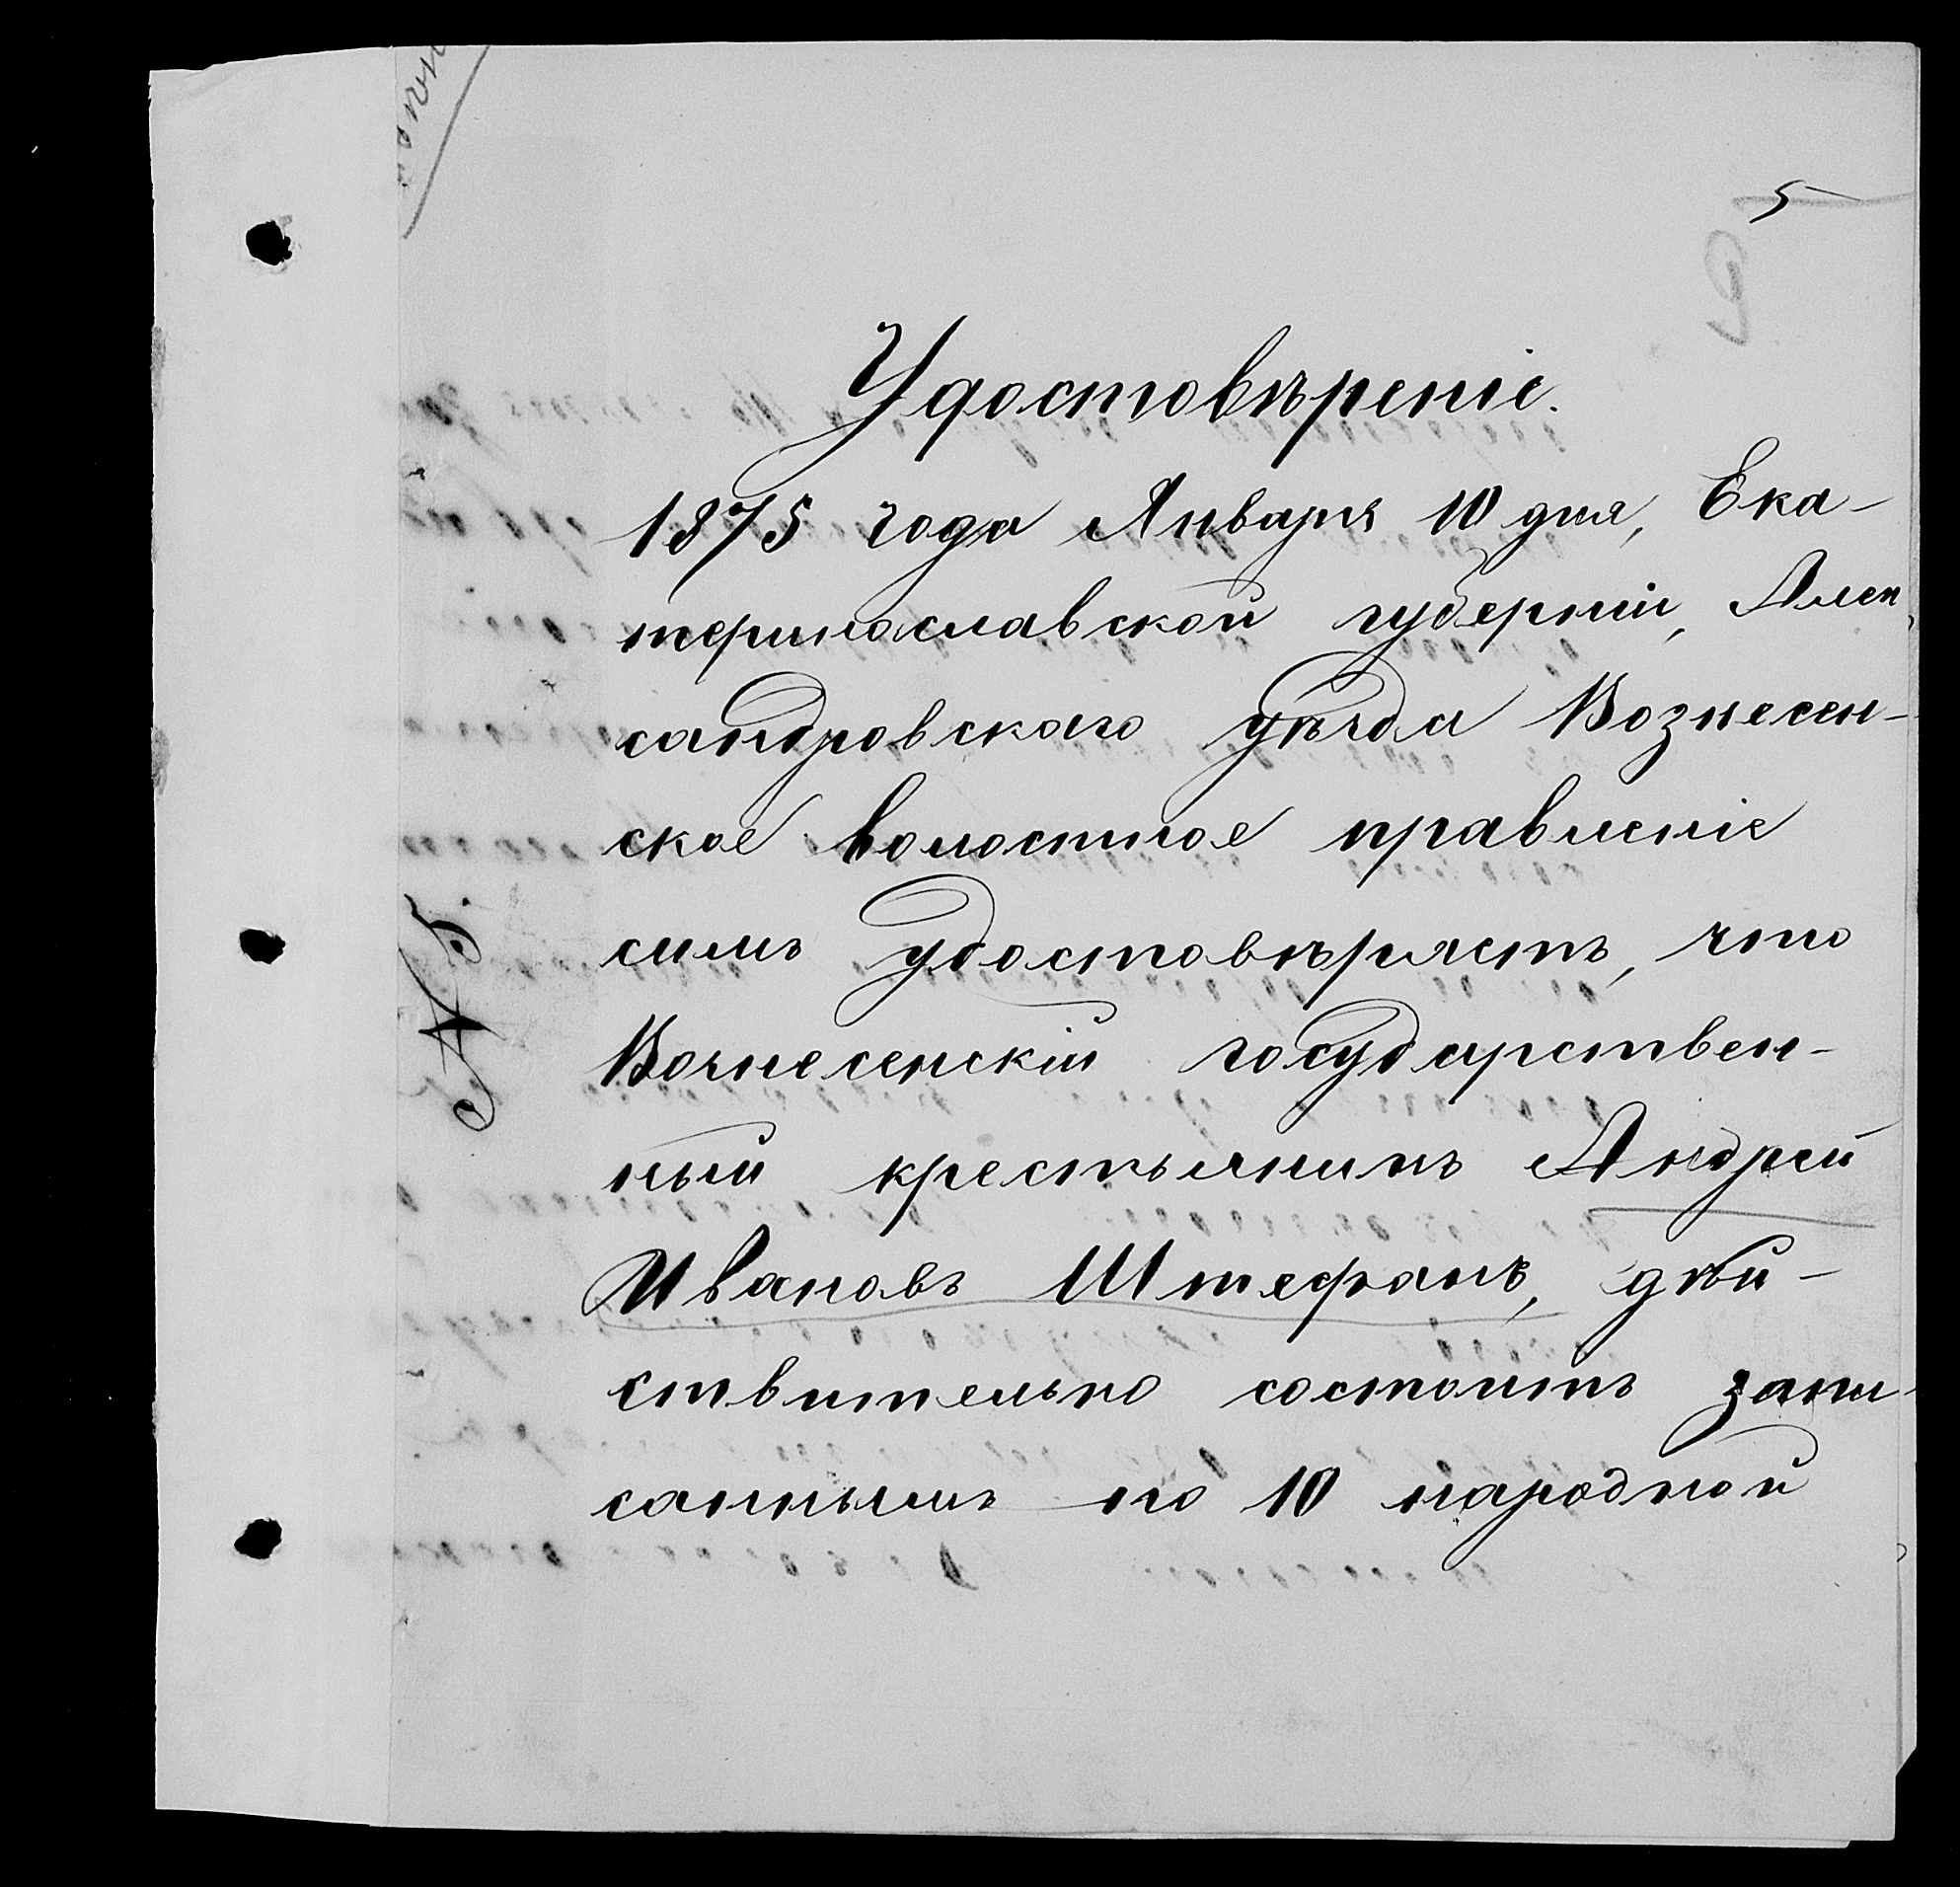 5
Удостовѣреніе.
1875 года Января 10 дня, Ека-
теринославской губерніи, Алек
сандровскаго уѣзда Вознесен-
ское волостное правленіе
симъ удостовѣряетъ, что
Вознесенскій государствен-
ный крестьянинъ Андрей
Ивановъ Штефанъ, дѣй-
ствительно состоитъ запи-
саннымъ по 10 народной
№ 5.